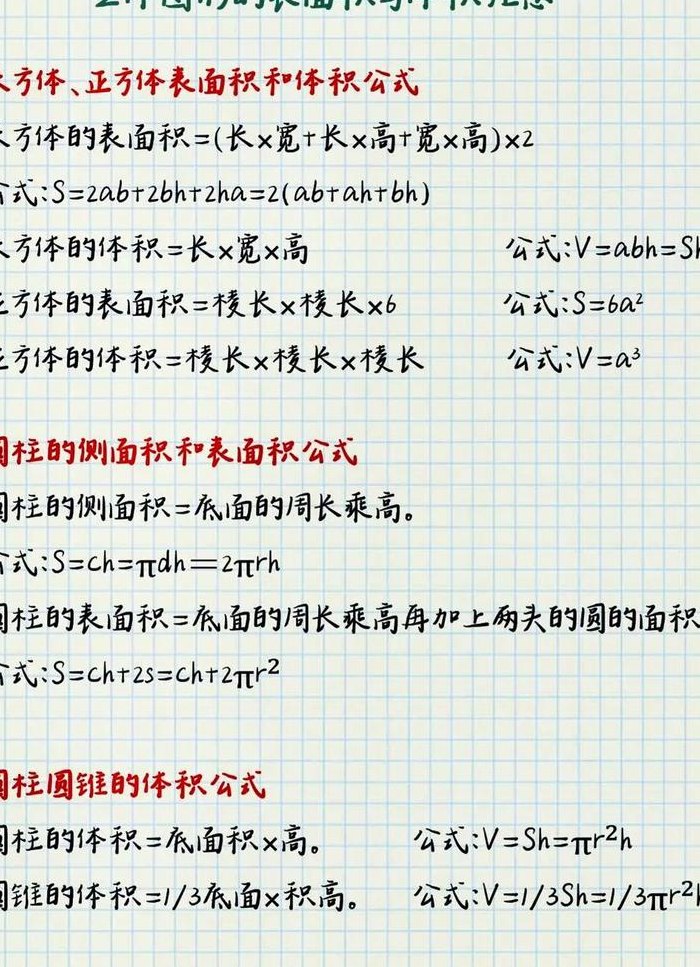 方体、正方体表面积和体积公式
方体的表面积=(长×宽+长×高+宽×高)×2
式:S=2ab+2bh+2ha=2(ab+ah+bh)
方体的体积=长×宽×高 公式:V=abh=Sh
方体的表面积=棱长×棱长×6 公式:S=6a²
方体的体积=棱长×棱长×棱长 公式:V=a³
柱的侧面积和表面积公式
柱的侧面积=底面的周长乘高。
式:S=ch=πdh=2πrh
柱的表面积=底面的周长乘高再加上两头的圆的面积
式:S=ch+2s=ch+2πr²
柱圆锥的体积公式
柱的体积=底面积×高。 公式:V=Sh=πr²h
锥的体积=1/3底面×积高。 公式:V=1/3Sh=1/3πr²h